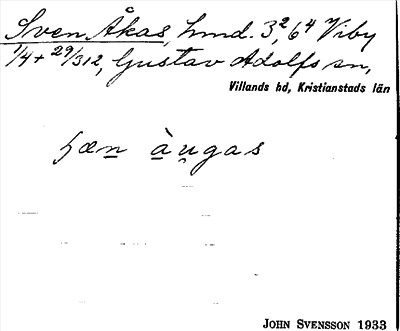 Sven Åkas, hmd. 3², 6⁴ Viby
1/4 + 29/312, Gustav Adolfs sn,
Villands hd, Kristianstads län
àu̯gas
JOHN SVENSSON 1933